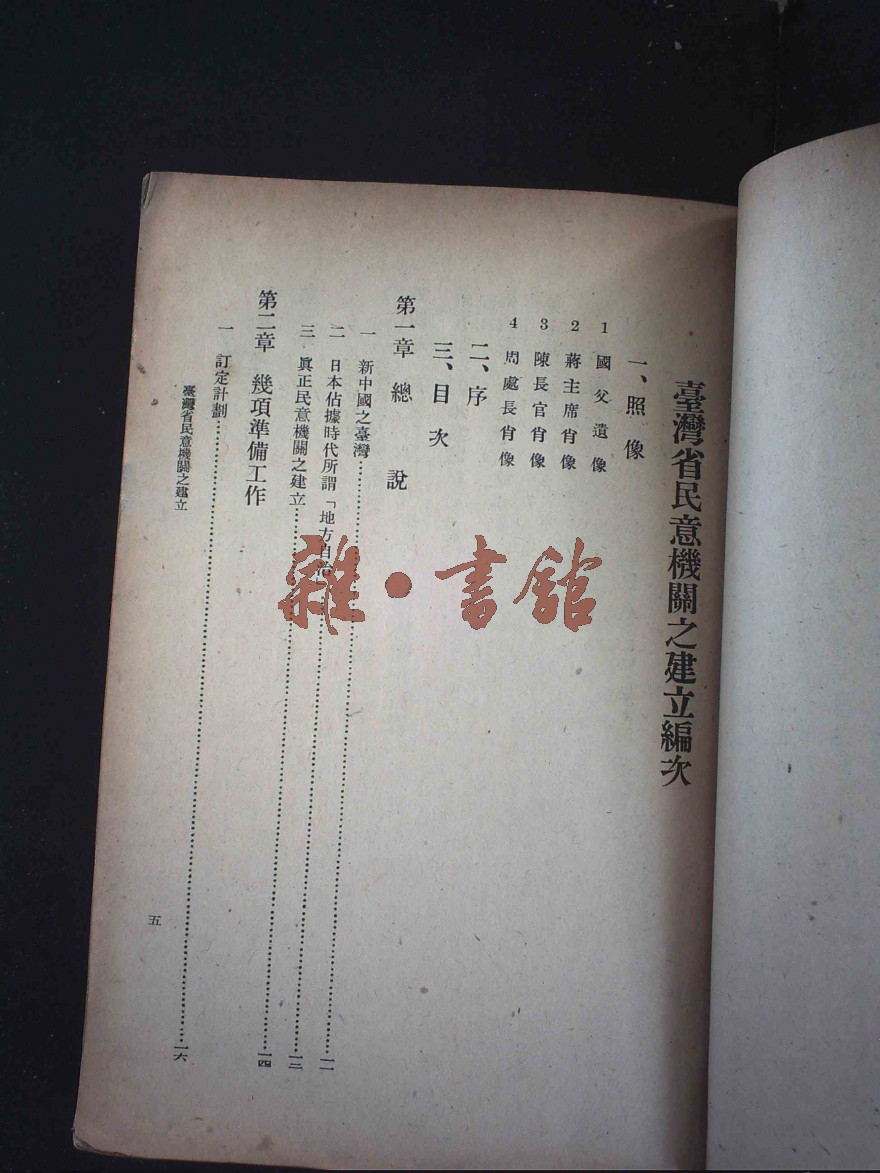 臺灣省民意機關之建立編次
一、照像
1 國父遺像
2 蔣主席肖像
3 陳長官肖像
4 周處長肖像
二、序
三、目次
第一章 總說
一 新中國之臺灣
二 日本佔據時代所謂「地方自治 一三
三 眞正民意機關之建立 一四
第二章 幾項準備工作
一 訂定計劃 一六
臺灣省民意機關之建立
五
雜·書館